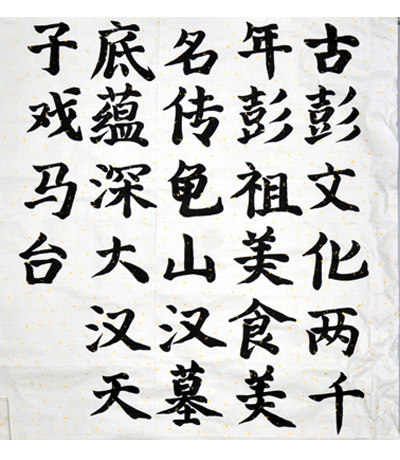 古彭文化两千
年彭祖美食美
名传龟山汉墓
底蕴深大汉天
子戏马台